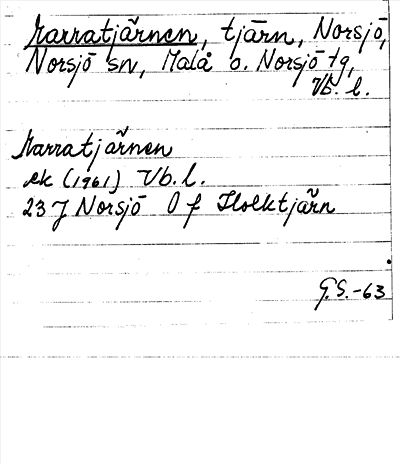 Marratjärnen, tjärn, Norsjö,
Norsjö sn, Malå o. Norsjö tg,
Vb. l.
Marratjärnen
ek (1961) Vb. l.
23 J Norsjö 0 f
G.S.-63